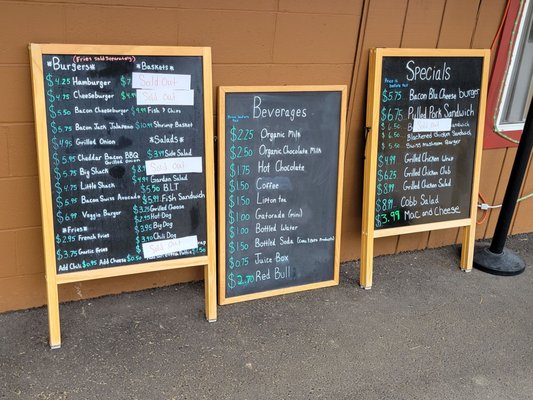 *Burgers*
(Fries Sold Separately)
$4.25 Hamburger
$4.75 Cheeseburger
$5.50 Bacon Cheeseburger
$5.75 Bacon Jack Jalapeno
$4.95 Grilled Onion
$5.95 Cheddar Bacon BBQ
Grilled Onion
$5.75 Big Shack
$4.75 Little Shack
$5.95 Bacon Swiss Avocado
$6.99 Veggie Burger
*Fries*
$2.95 French Fries
$3.75 Garlic Fries
Add Chili $0.95 Add Cheese
*Baskets*
Sold out
Sold out
Fish & Fries
$10.99 Shrimp Basket
*Salads*
$3.99 Side Salad
$4.99 Garden Salad
Sold out
$5.50 B.L.T
$5.95 Fish Sandwich
$3.75 Grilled Cheese
$2.95 Hot Dog
$3.95 Chili Dog
$3.90 Big Hot Dog
Sold out
Beverages
$2.25 Organic Milk
$2.50 Organic Chocolate Milk
$1.75 Hot Chocolate
$1.50 Coffee
$1.50 Lipton tea
$1.00 Gatorade (mini)
$1.00 Bottled Water
$1.50 Bottled Soda
$0.75 Juice Box
$2.70 Red Bull
Specials
$5.75 Bacon Blu Cheese burger
$6.75 Pulled Pork Sandwich
Sold out
Blackened Chicken Sandwich
Swiss mushroom Burger
$4.99 Grilled Chicken Wrap
$6.25 Grilled Chicken Club
$8.99 Grilled Chicken Salad
$8.99 Cobb Salad
$3.99 Mac and Cheese